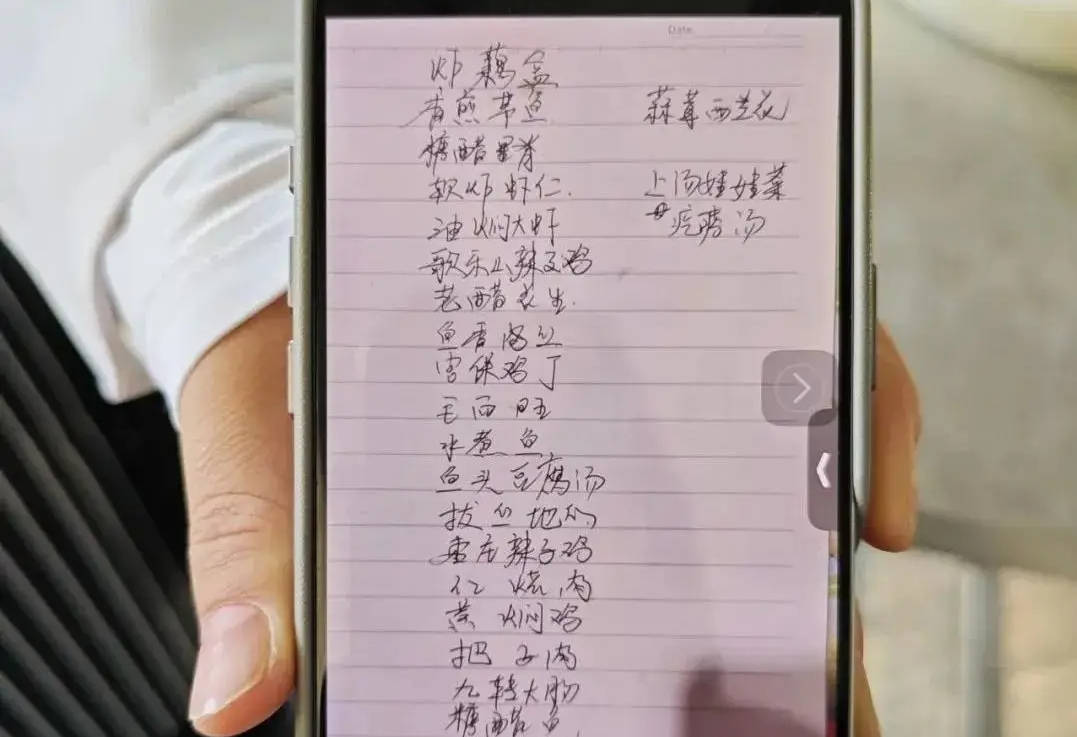 Date
炸藕盒
香煎带鱼
糖醋里脊
软炸虾仁.
油焖大虾
歌乐山辣子鸡
老醋花生.
鱼香肉丝
宫保鸡丁
毛血旺
水煮鱼
鱼头豆腐汤
拔丝地瓜
枣庄辣子鸡
红烧肉
黄焖鸡
把子肉
九转大肠
糖醋鱼.
蒜蓉西兰花
上汤娃娃菜
疙瘩汤